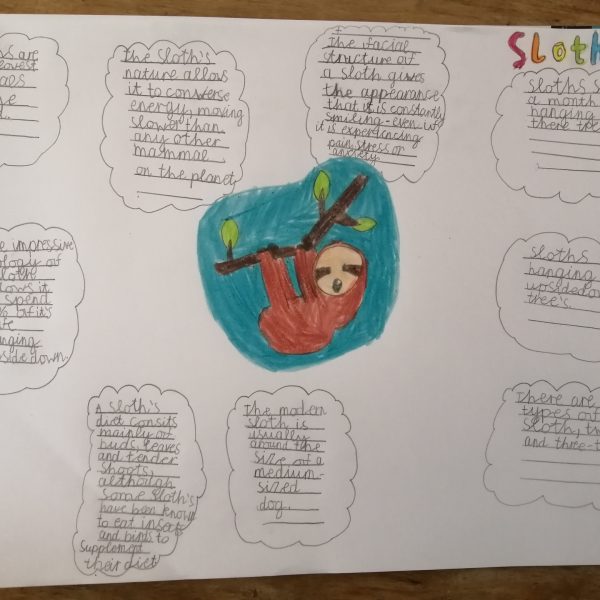 Sloth
are
lowest
The sloth's
nature allows
it to converse
energy, moving
slower than
any other
mammal
on the planet
The facial
structure of
a sloth gives
the appearance
that it is constantly
smiling - even if
it is experiencing
pain, stress or
anxiety.
Sloths
a month
hanging
there tree
impressive
ology of
sloth
lows it
spend
% of it's
life
hanging
upside down.
Sloths
hanging
upsidedow
tree's.
A sloth's
diet consits
mainly of
buds, leaves
and tender
shoots,
although
some sloth's
have been known
to eat insects
and birds to
supplement
their diet
The modern
sloth is
usually
around the
size of a
medium-
sized
dog.
There are
types of
sloth, tw
and three-t